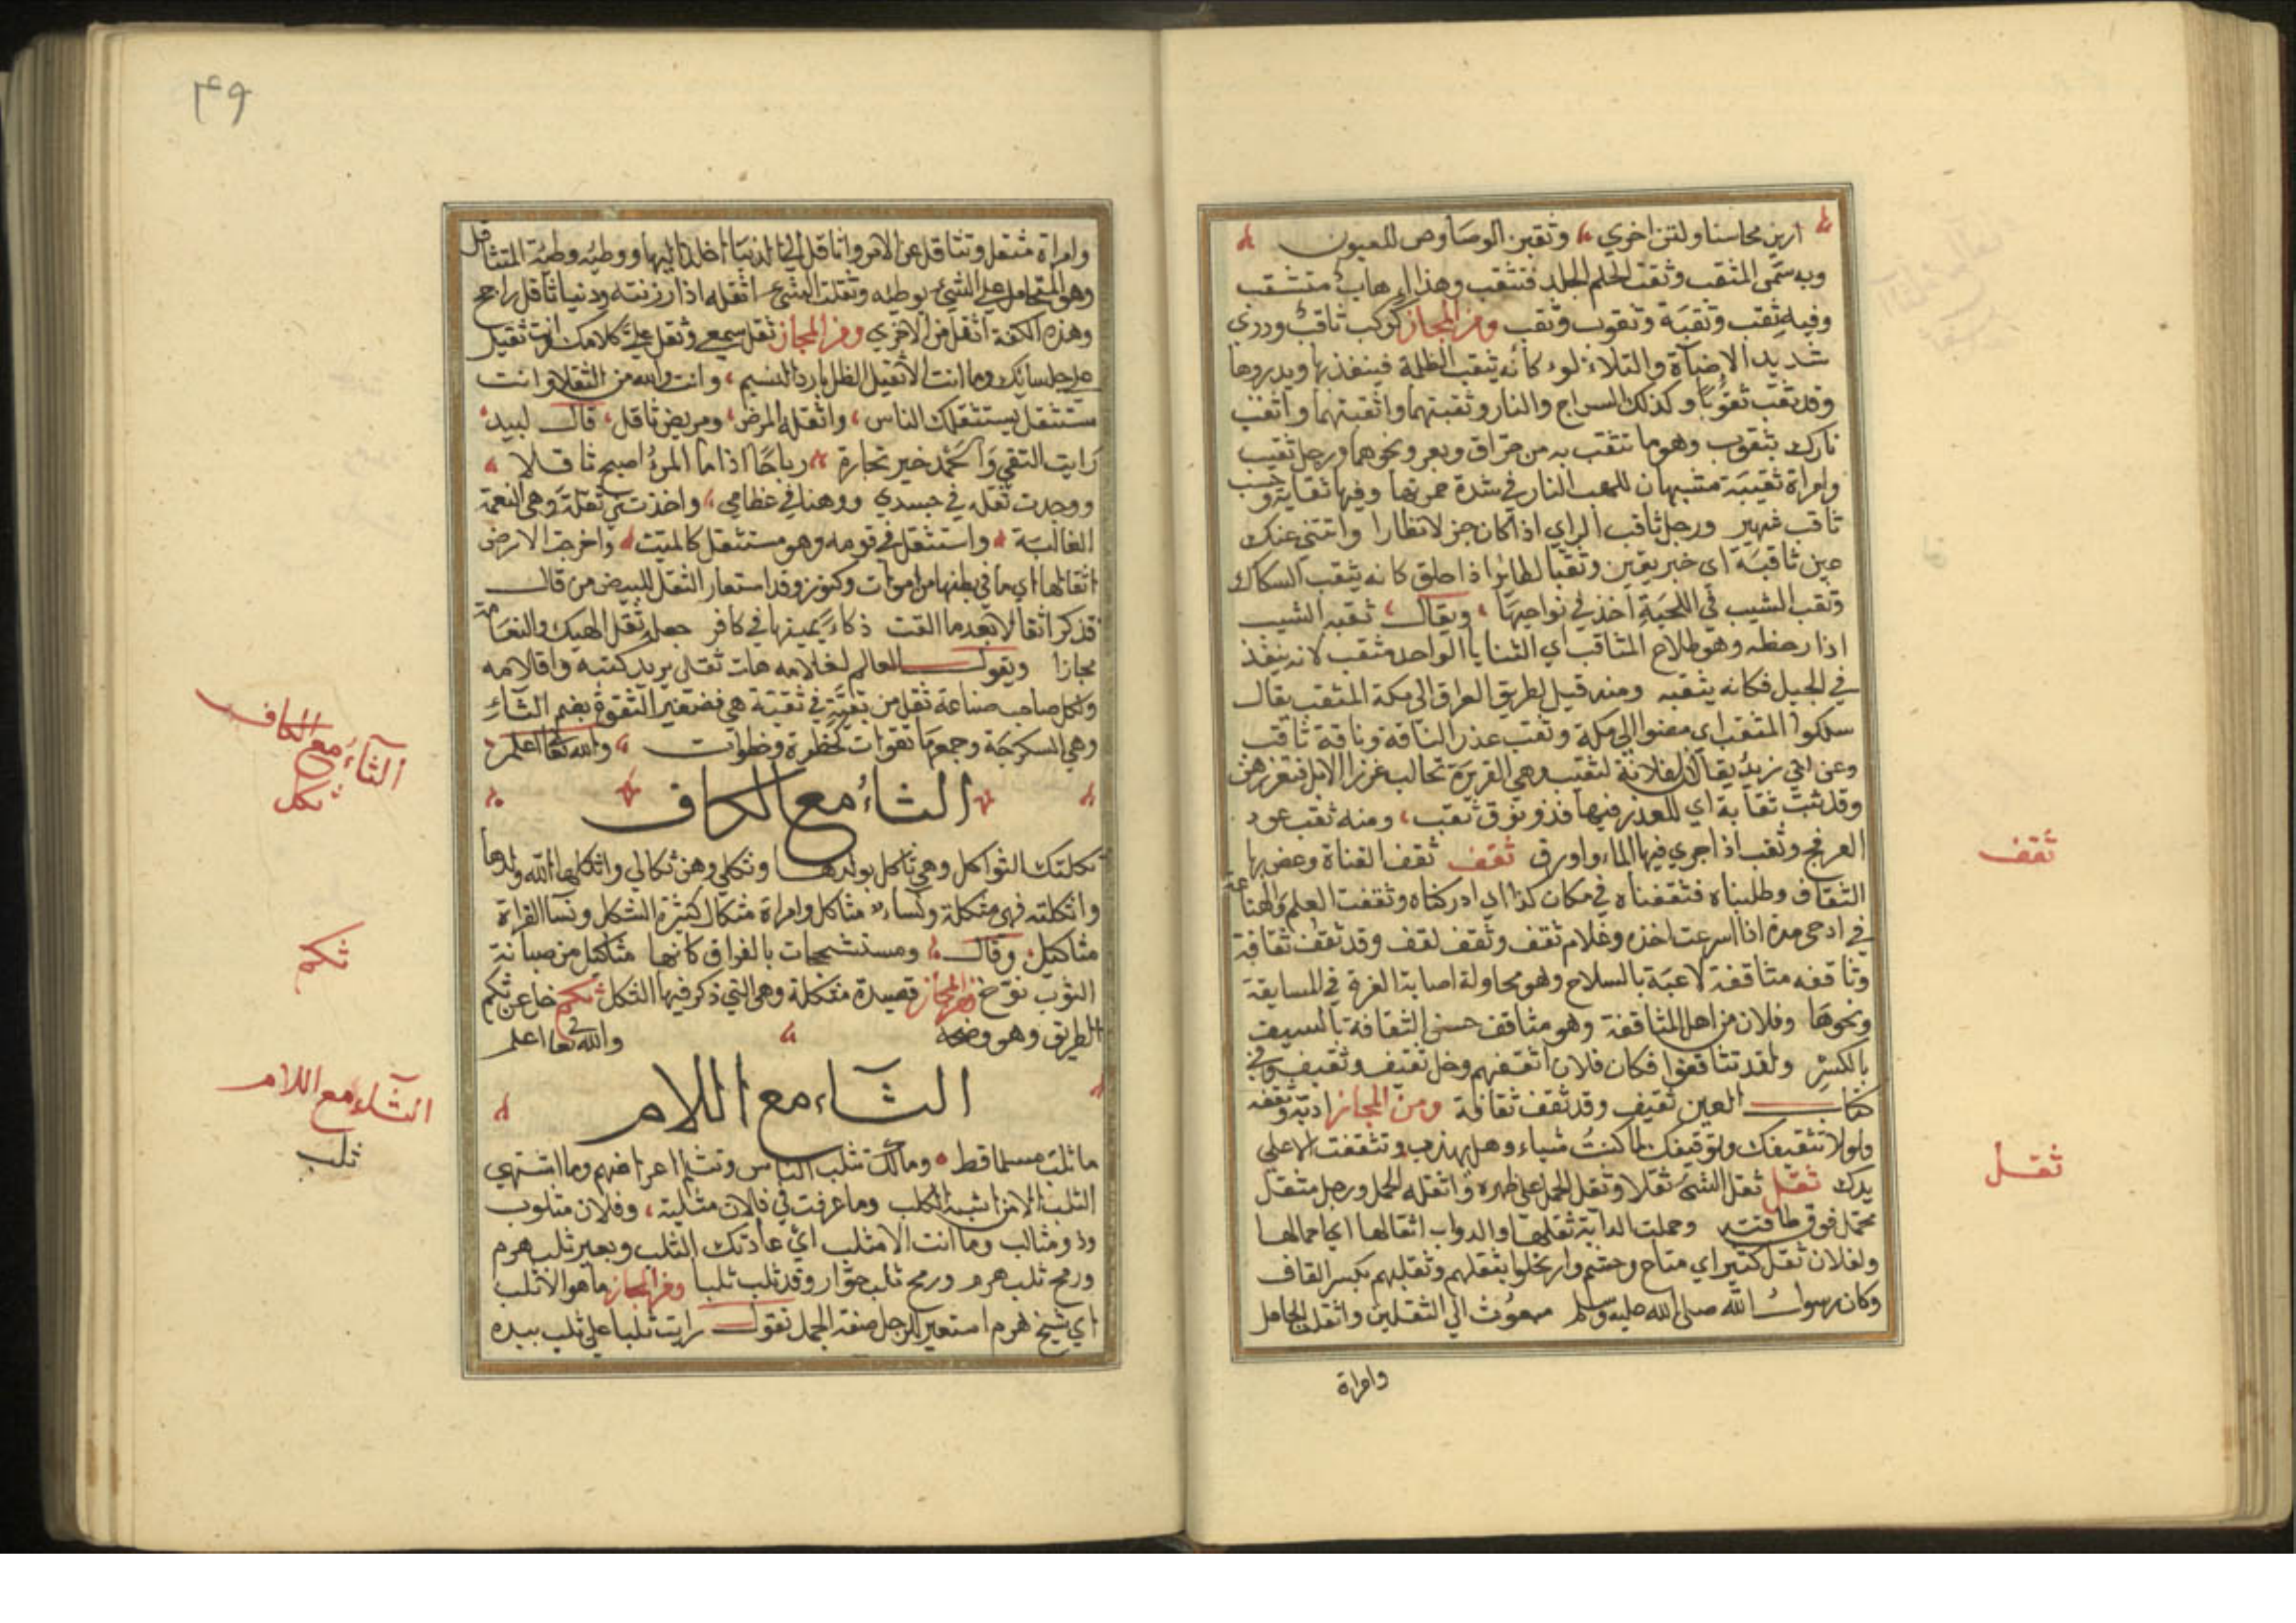 ارين محاسنا ولتن اخري وثقبن الوصاوص للعيون
وبه سمى المثقب وثقت الحلم الجلد فتثقب وهذا اهاب متثقب
وفيه ثقب وثقبة وثقوب وثقب ومن المجاز كوكب ثاقب ودري
شديد الاضآة والتلاءلوء كانه يثقب الظلمة فينفذ بها ويدروها
وقد ثقب ثقوبا وكذلك السراج والنار وثقبتهما واثقبتهما واثقب
نارك بثقوب وهو ما تثقب به من حراق وبعر ونحوهما ورجل ثقيب
وامراة ثقيبة مشبهان للهب النار في شدة حمرتها وفيها ثقابة وحسب
ثاقب شهير ورجل ثاقب الراي اذا كان جزلا نظارا واتتني عنك
عين ثاقبة اي خبر يقين وثقب الطائر اذا حلق كانه يثقب السكاك
وثقب الشيب في اللحية اخذ في نواحيها ويقال ثقبه الشيب
اذا وخطه وهو طلاع المثاقب اي الثنايا الواحد مثقب لانه ينفذ
في الجبل فكانه يثقبه ومنه قيل لطريق العراق الى مكة المثقب يقال
سلكوا المثقب اي مضوا الي مكة وثقب عذر الناقة وناقة ثاقب
وعن ابي زيد يقال ان فلانة لثقيب وهي القريرة تحالب غزار الابل فتغزرهن
وقد ثقبت ثقابة اي للعذر فيها فذو نوق ثقب ومنه ثقب عود
العرفج وثقب اذا جري فيها الماء واورق ثقف ثقف القناة وعض بها
الثقاف وطلبناه فثقفناه في مكان كذا اي ادركناه وثقفت العلم والصناعة
في اوحى مدة اذا اسرعت اخذه وغلام ثقف وثقف لقف وقد ثقف ثقافة
وثاقفه مثاقفة لاعبة بالسلاح وهو محاولة اصابة الغرة في المسايفة
ونحوها وفلان من اهل المثاقفة وهو مثاقف حسن الثقافة بالسيف
بالكسر ولقد تثاقفوا فكان فلان اثقفهم وخل ثقيف وثقيف وفي
كتاب العين ثقيف وقد ثقف ثقافة ومن المجاز ادبه وثقفه
ولولا تثقيفك وتوقيفك لما كنت شياء وهل تهذبت وتثقفت الا على
يدك ثقل ثقل الشئ ثقلا وثقل الحمل على ظهره واثقله الحمل ورجل مثقل
محمل فوق طاقته وحملت الدابة ثقلها والدواب اثقالها اي احمالها
ولفلان ثقل كثير اي متاع وحشم وارتحلوا بثقلهم وثقلهم بكسر القاف
وكان رسول الله صلى الله عليه وسلم مبعوث الي الثقلين واثقلت الحامل
وامراة
ثقف
ثقل
٤٩
وامراة مثقل وتثاقل عن الامر واثاقل الى الدنيا اخلد اليها ووطئه وطئة المتثاقل
وهو المتحامل علي الشئ بوطئه وثقلت الشئ اثقله اذا رزنته ودنيا ثاقل راجح
وهذه الكفة اثقل من الاخري ومن المجاز ثقل سمعي وثقل على كلامك وانت ثقيل
على جلسائك وما انت الا ثقيل الظل بارد النسيم وانت والله من الثقلاء وانت
مستثقل يستثقلك الناس واثقله المرض ومريض ثاقل قال لبيد
رايت التقي والحمد خير تجارة رباحا اذا ما المرؤ اصبح ثاقلا
ووجدت ثقلة في جسدي ووهنا في عظامي واخذتني ثقلة وهي النعمة
الغالبة واستثقل في نومه وهو مستثقل كالميت واخرجت الارض
اثقالها اي ما في بطنها من اموات وكنوز وقد استعار الثقل للبيض من قال
فذكرا ثقلا بعد ما القت ذكاء يمينها في كافر جعله ثقل الهيك والنعامة
مجازا ويقول العالم لغلامه هات ثقلي يريد كتبه واقلامه
ولكل صاحب صناعة ثقل من ثقبة في ثقبة هي فضتغير الثقوة بضم الثاء
وهي السكرجة وجمعها ثقوات كخطوة وخطوات والله تعا اعلم
الثاء مع الكاف
ثكلتك الثواكل وهي ثاكل بولدها وثكلي وهن ثكالي واثكلها الله ولدها
واثكلته فهي مثكلة ونساء مثاكل وامراة مثكال كثيرة الثكل ونسآ الفراة
مثاكيل وقال ومستشحجات بالفراق كانها مثاكيل من صبابة
النوب نوح ومن المجاز قصيدة مثكلة وهي التي ذكر فيها الثكل ثكم خل عن ثكم
الطريق وهو وضحه والله تعا اعلم
الثآء مع اللام
ما ثلبت مسلما قط ومالك تثلب الناس وتثلم اعراضهم وما اشتهي
الثلب الا من اشبه الكلب وما عرفت في فلان مثلبة وفلان مثلوب
وذو مثالب وما انت الا مثلب اي عادتك الثلب وبعير ثلب هرم
ورمح ثلب هرم ورمح ثلب خوار وقد ثلب ثلبا ومن المجاز ما هو الا ثلب
اي شيخ هرم استعير للرجل صفة الجمل تقول رايت ثلبا على ثلب بيده
الثآء مع الكاف
ثكل
ثكم
الثآء مع اللام
ثلب